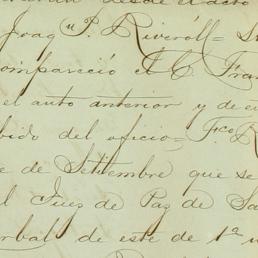 desde el acto
Joaq.n P. Riveroll = S
compareció el C. Fran
el auto anterior y de e
bido del oficio = F.co R
e de Setiembre que se
l Juez de Paz de Sa
rbal de este de 1a